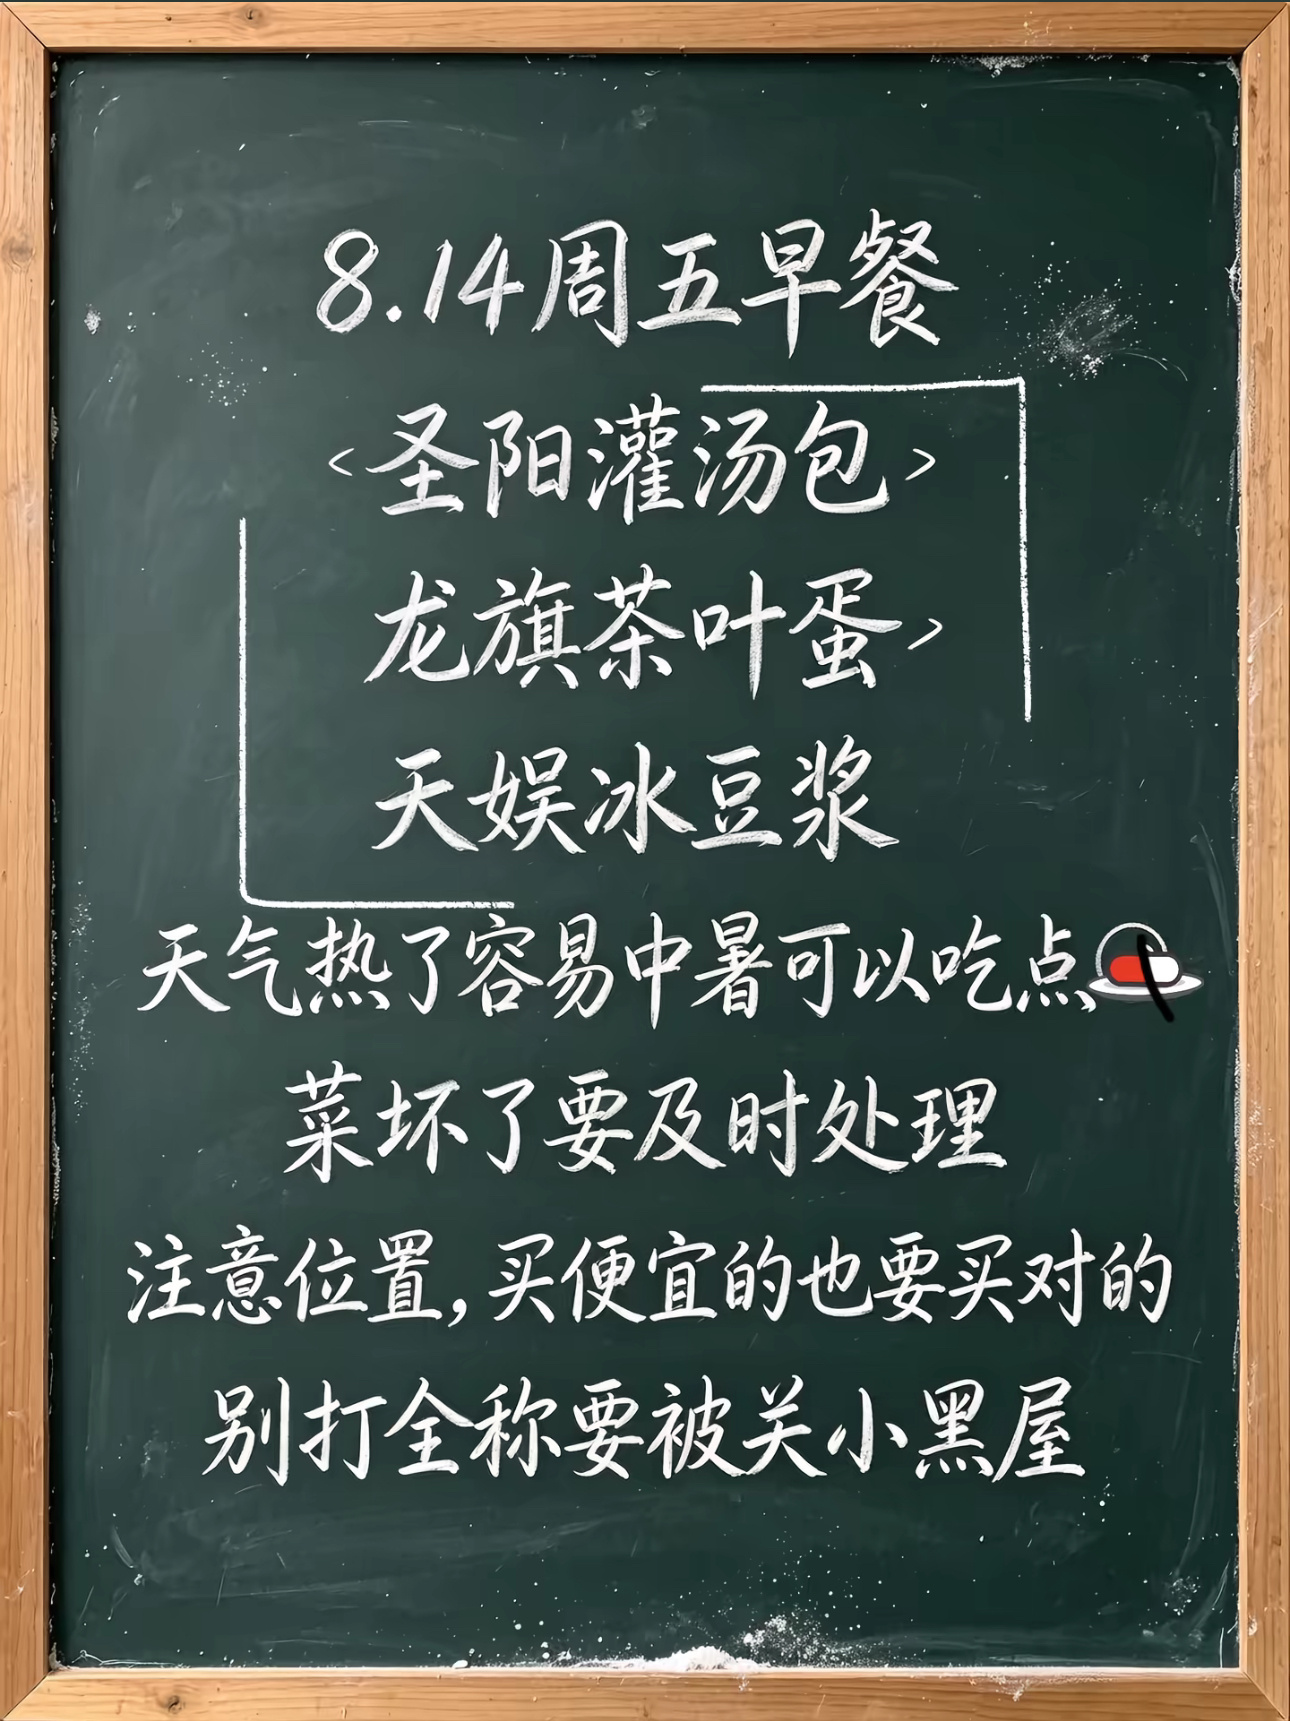 8.14周五早餐
<圣阳灌汤包>
龙旗茶叶蛋>
天娱冰豆浆
天气热了容易中暑可以吃点
菜坏了要及时处理
注意位置,买便宜的也要买对的
别打全称要被关小黑屋